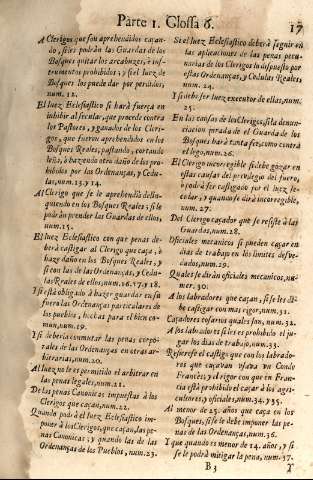 Parte 1. Glossa 6.
17
A Clerigos que son aprehendidos caçan-
do, si les podràn las Guardas de los
Bosques quitar los arcabuzes, è ins-
trumentos prohibidos, y si el Iuez de
Bosques los puede dar por perdidos,
num. 12.
El Iuez Eclesiastico si harà fuerça en
inhibir al secular, que procede contra
los Pastores, y ganados de los Cleri-
gos, que fueron aprehendidos en los
Bosques Reales, pastando, cortando
leña, ò hazendo otro daño de los prohi-
bidos por las Ordenanças, y Cedu-
las, num. 13. y 14.
Al Clerigo que se le aprehendiò delin-
quiendo en los Bosques Reales, si le
podràn prender las Guardas de ellos,
num. 15.
El Iuez Eclesiastico con que penas de-
berà castigar al Clerigo que caça, ò
haze daño en los Bosques Reales, y
si con las de las Ordenanças, y Cedu-
las Reales de ellos, num. 16. 17. y 18.
Y si està obligado à hazer guardar en su
fuero las Ordenanças particulares de
los Pueblos, hechas para el bien co-
mun, num. 19.
Y si deberia conmutar las penas corpo-
rales de las Ordenanças en otras ar-
bitrarias, num. 20.
Al Iuez no le es permitido el arbitrar en
las penas legales, num. 21.
De las penas Canonicas impuestas à los
Clerigos que caçan, num. 22.
Quando podrà el Iuez Eclesiastico im-
poner à los Clerigos, que caçan, las pe-
nas Canonicas; y quando las de las
Ordenanças de los Pueblos, num. 23.
Si el Iuez Eclesiastico deberà seguir en
las aplicaciones de las penas pecu-
narias de los Clerigos lo dispuesto por
estas Ordenanças, y Cedulas Reales,
num. 24.
Y si debe ser Iuez executor de ellas, num.
25.
En las causas de los Clerigos, si la denun-
ciacion jurada de el Guarda de los
Bosques harà tanta fee, como contra
el lego, num. 26.
El Clerigo incorregible si debe gozar en
estas causas del privilegio del fuero,
ò podrà ser castigado por el Iuez se-
cular, y quando se dirà incorregible,
num. 27.
Del Clerigo caçador que se resiste à las
Guardas, num. 28.
Oficiales mecanicos si pueden caçar en
dias de trabajo en los limites desve-
dados, num. 29.
Quales se diràn oficiales mecanicos, nu-
mer. 30.
A los labradores que caçan, si se les de-
be castigar con mas rigor, num. 31.
Caçadores cosarios quales son, num. 32.
A los labradores si les es prohibido el ju-
gar los dias de trabajo, num. 33.
Refierese el castigo que con los labrado-
res que caçavan usava un Conde
Francès; y el rigor con que en Fran-
cia està prohibido el caçar à los agri-
cultores, y oficiales, num. 34. y 35.
Al menor de 25. años que caça en los
Bosques, si se le debe imponer las pe-
nas de las Ordenanças, num. 36.
Y que quando es menor de 14. años, y si
se le podrà mitigar la pena, num. 37.
B 3
Y